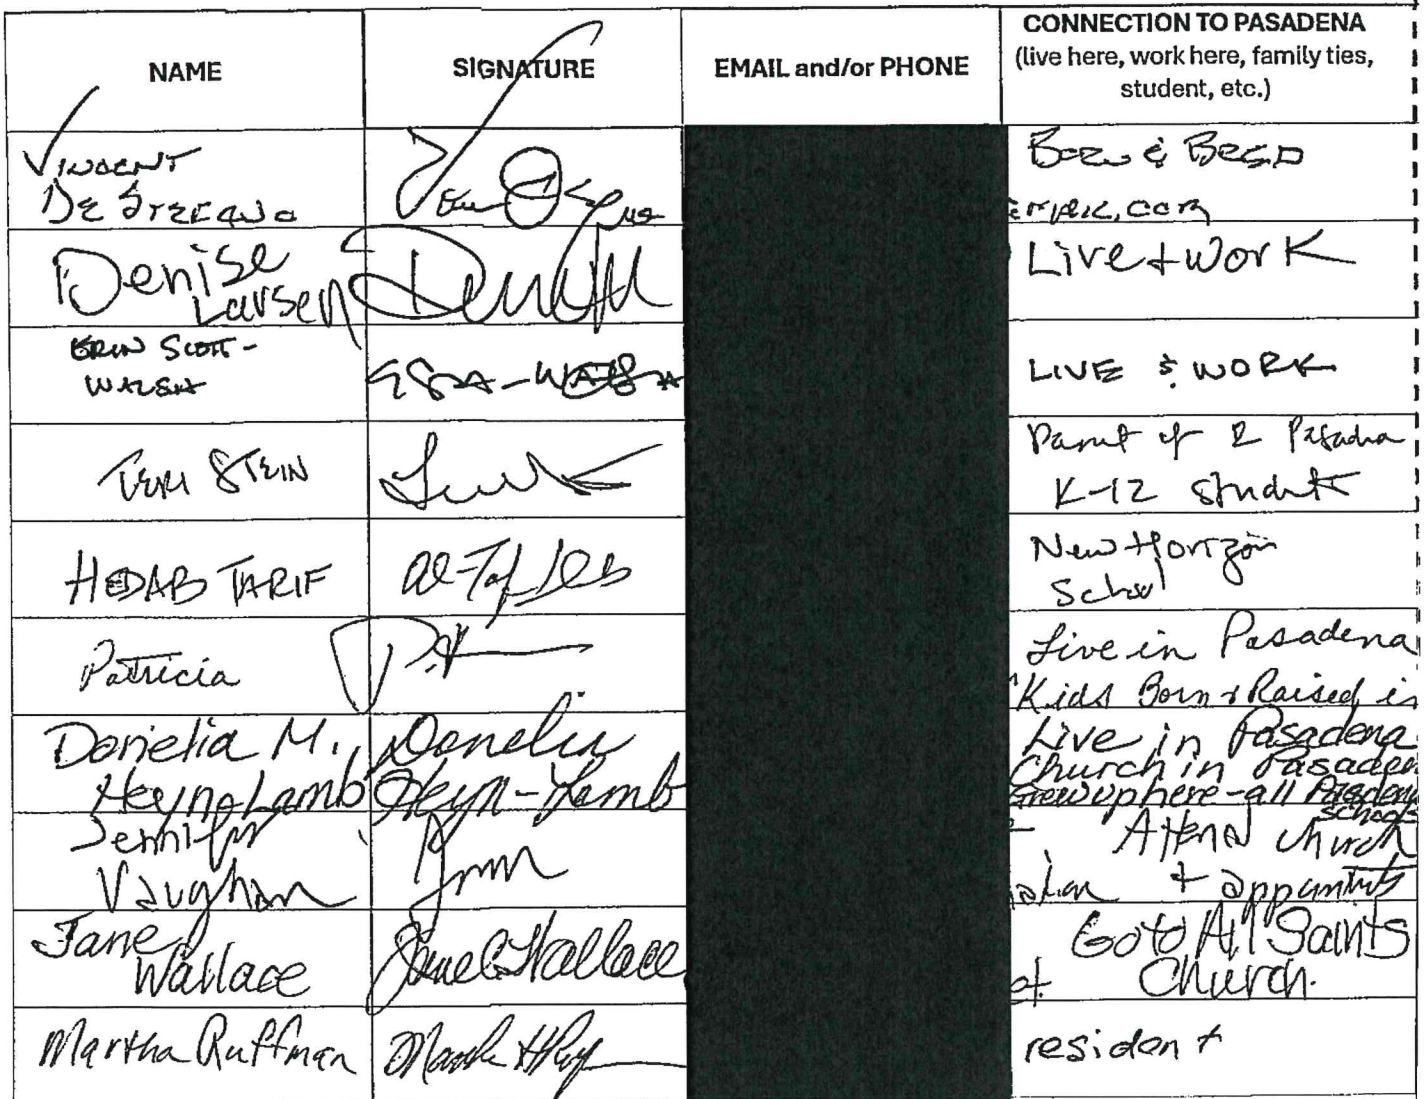 NAME
SIGNATURE
EMAIL and/or PHONE
CONNECTION TO PASADENA
(live here, work here, family ties,
student, etc.)
VINCENT
DE STEFANO
BORN & BRED
Denise
Larsen
Live + work
ERIN SCOTT-
WALSH
LIVE & WORK
TERI STEIN
Parent of 2 Pasadena
K-12 students
HEDAB TARIF
New Horizon
School
Patricia
Live in Pasadena
Kids Born & Raised in
Donelia M.
Heyn-Lamb
Donelia
Heyn-Lamb
Live in Pasadena
Church in Pasaden
Grew up here - all Pasadena
schools
Jennifer
Vaughan
Jenn
Attend church
+ appointments
Jane
Wallace
Jane C Wallace
Go to All Saints
Church.
Martha Ruffman
resident